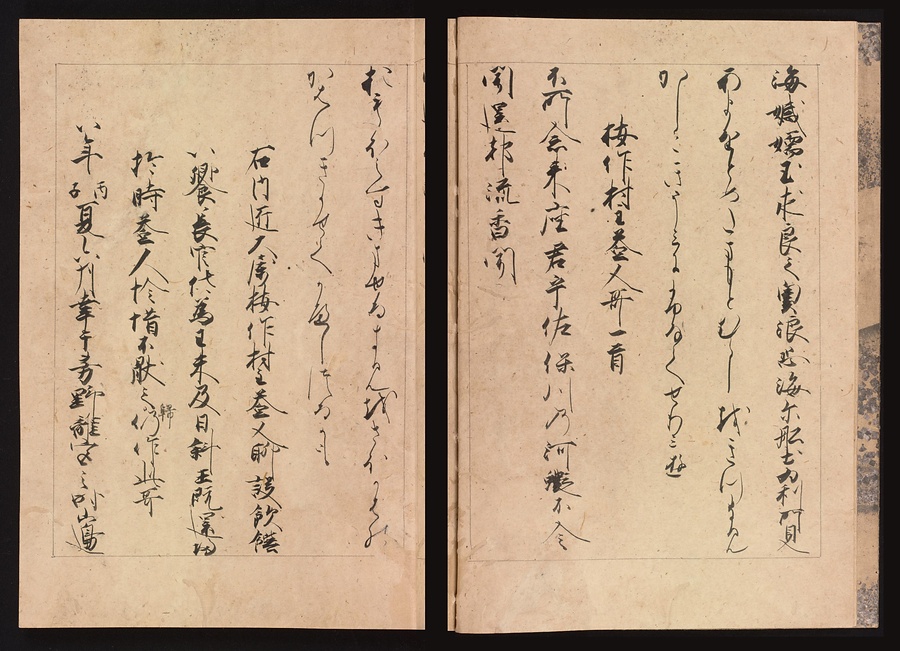 海𡢳嬬玉求良之奥浪恐海尓船出為利所見
あまをとめたまもとむらしおきつなみ
かしこきうみにふなてせりみゆ
桉作村主益人哥一首
不所念来座君乎佐保川乃河蝦不令
聞還都流香聞
おもほえすきませるきみをさほかはの
かはつきかせてかへしつるかも
右内匠大属桉作村主益人聊設飲饌
以饗長官佐為王未及日斜王既還帰
於時益人怜惜不猒之歸仍作此哥
八年丙子夏六月幸于芳野離宮之時山邊